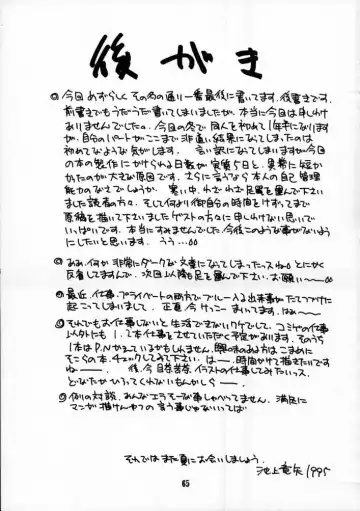 後がき
◎今回めずらしくその名の通り一番最後に書いてます。後書きです。
前書きでもうだうだ書いてしまいましたが、本当に今回は申しわけ
ありませんでした。今回の冬で同人を初めて1年半になります
が、自分のパートがここまで非道い結果になってしまったのは
初めてなような気がします。言い訳になってしまいますが今回
の本の製作にかけられる日数が実質5日と、異常に短か
かったのが大きな原因です。さらに言うなら本人の自己管理
能力のなさでしょうか。寒い中、わざわざ足を運んで下さい
ました読者の方々、そして何より御自分の時間をけずってまで
原稿を描いて下さいましたゲストの方々に申しわけない思いで
いっぱいです。本当にすみませんでした。今後このような事がないよう
にしたいと思います。うう…
◎ああ、何か非常にダークな文章になってしまったっスね とにかく
反省してますんで、次回以降も足を運んで下さい。お願い〜
◎最近、仕事・プライベートの両方でブルー入る出来事がたてつづけに
起こってしまいまして、正直今けっこーまいってます。はぁ〜
◎それでもお仕事しないと生活できないワケでして、コミケの仕事
以外にも1、2本仕事をさせていただく予定があります。そのうち
1本はP.Nかえているかもしれません。興味のある方はこまめに
そこらの本、チェックしてみて下さい。は〜、時間かけて描きたいです
ね〜。後、今回イラストの仕事してみたいっス。
どなたかひろってくれないもんかしら〜。
◎例の対談、あんなエラそーな事しゃべってません。満足に
マンガ描けんやつの言う事じゃないっていうば
それではまた夏にお会いしましょう。
池上竜矢 1995
65